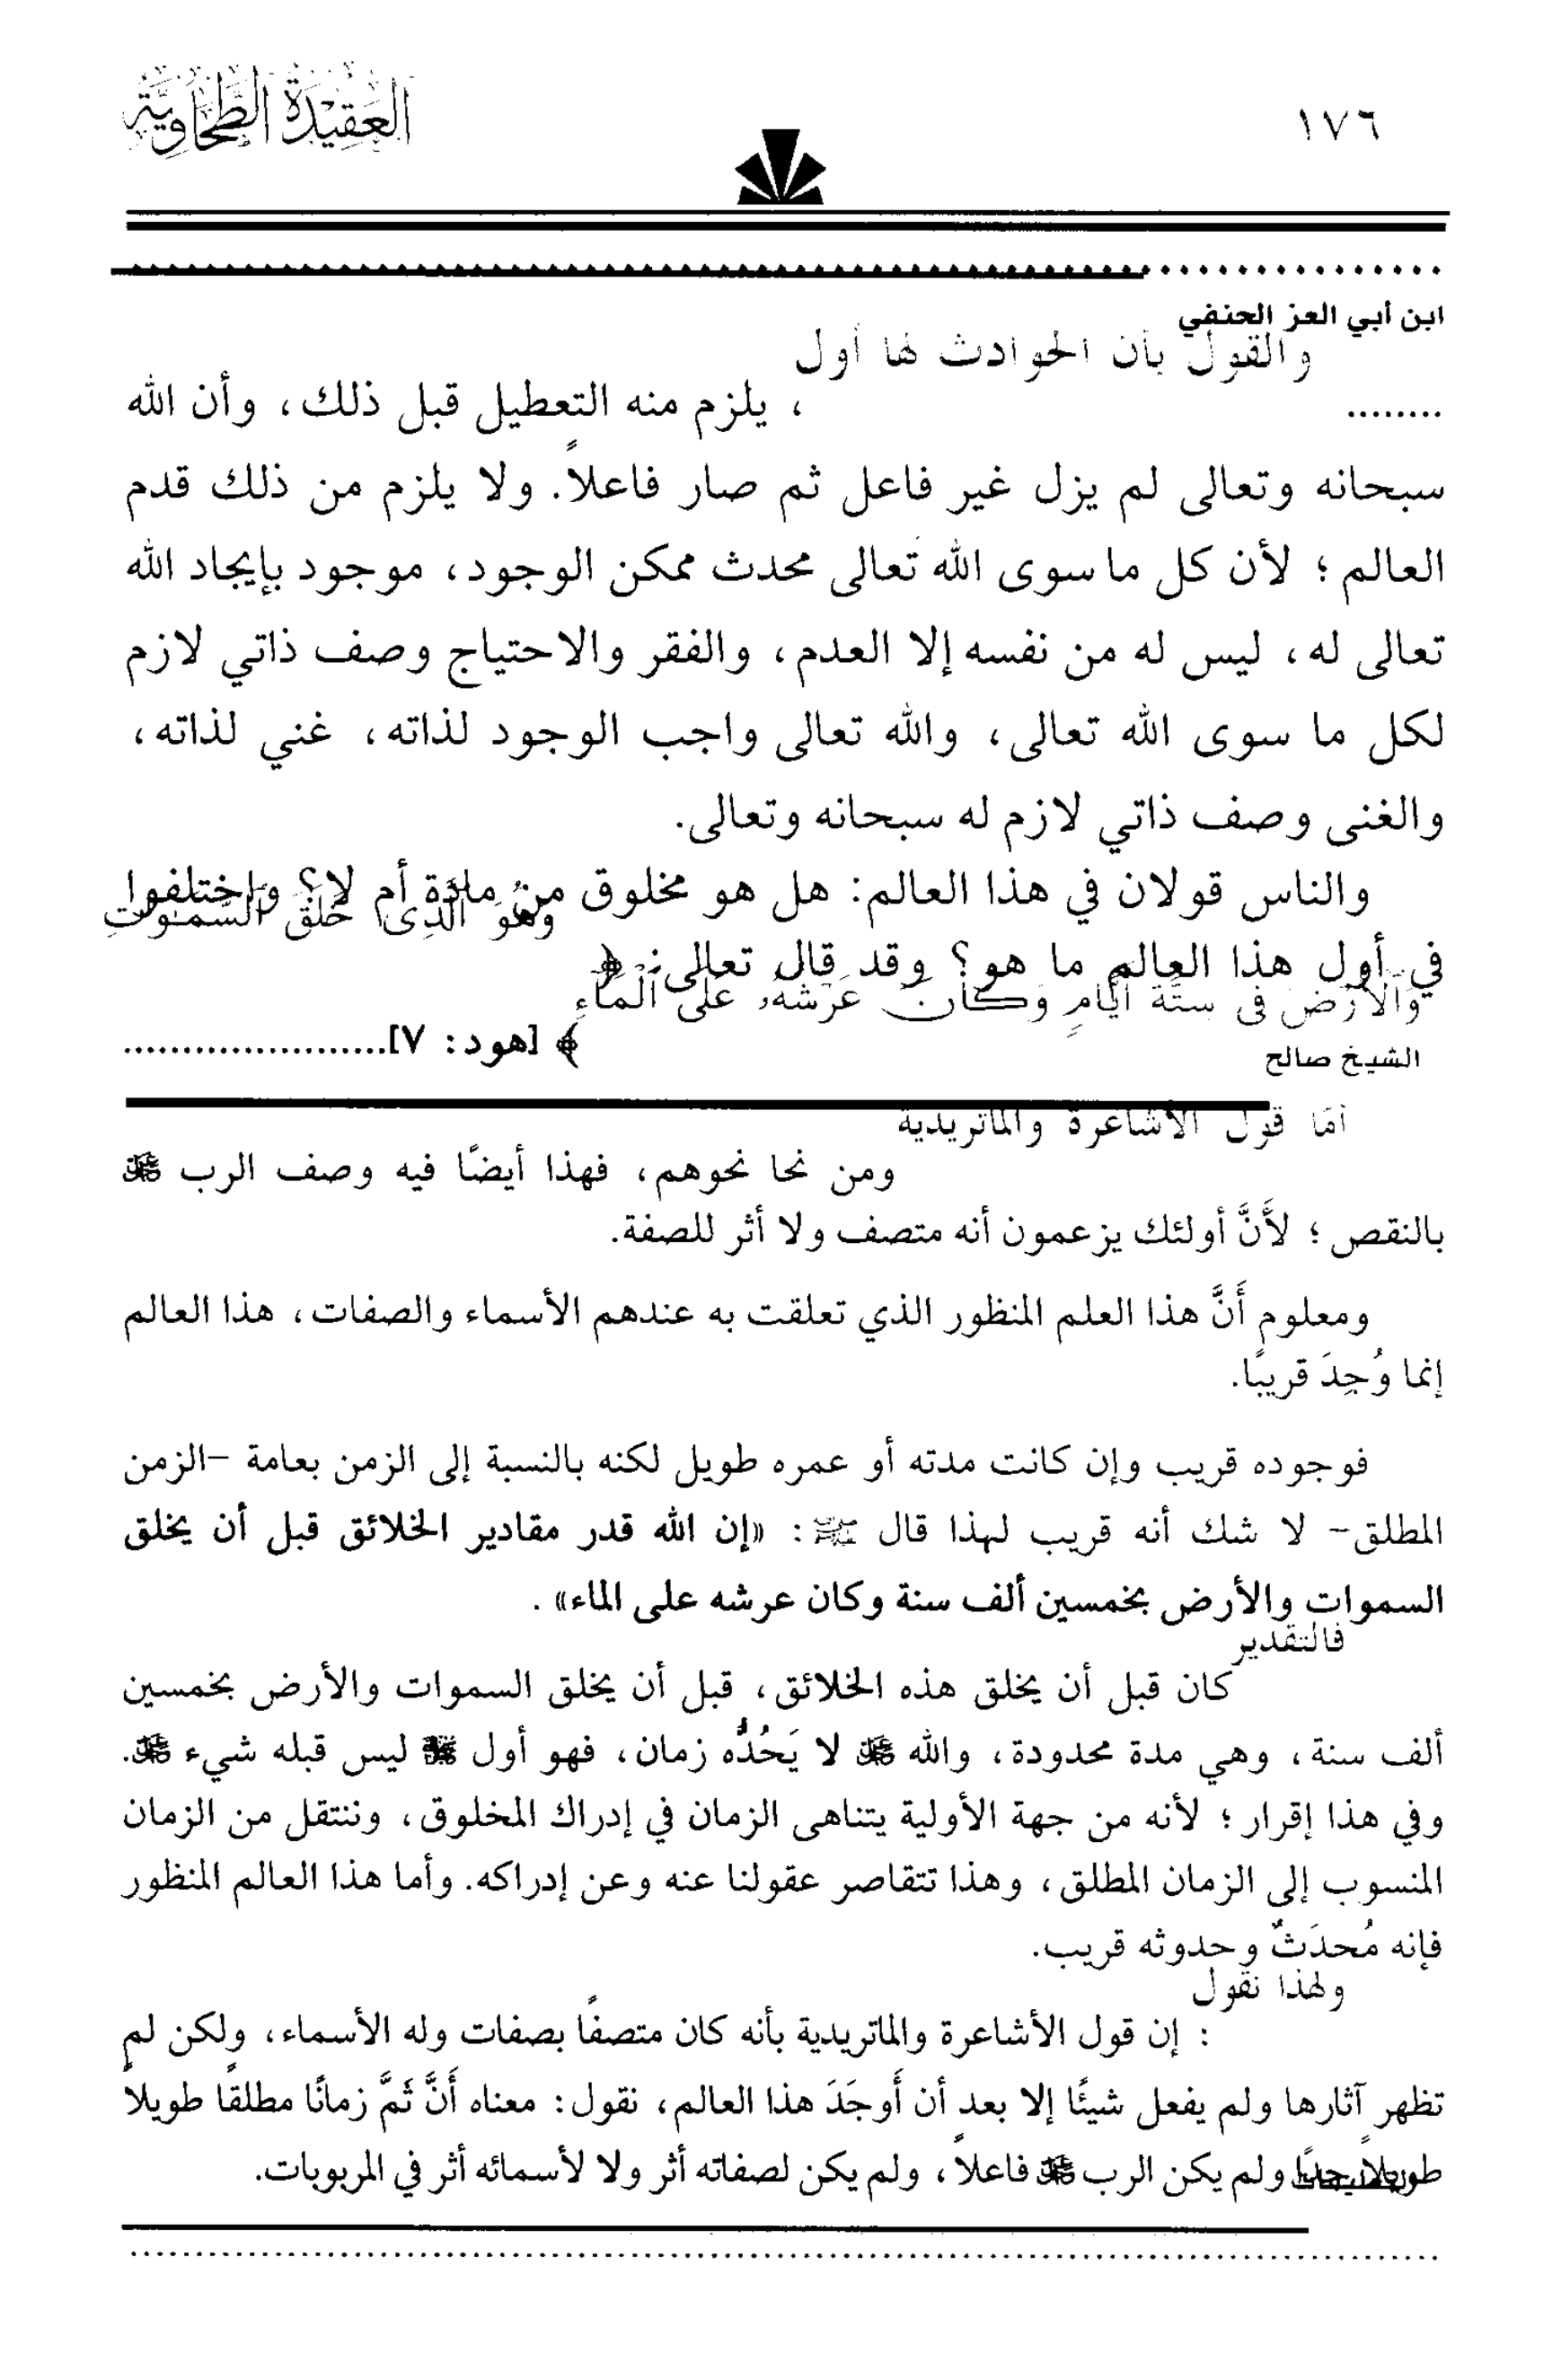 ١٧٦
العَقِيْدَة الطَّحَاوِيَّة
ابن أبي العز الحنفي
والقول بأن الحوادث لها أول
........ ، يلزم منه التعطيل قبل ذلك، وأن الله
سبحانه وتعالى لم يزل غير فاعل ثم صار فاعلاً. ولا يلزم من ذلك قدم
العالم ؛ لأن كل ما سوى الله تعالى محدث ممكن الوجود، موجود بإيجاد الله
تعالى له، ليس له من نفسه إلا العدم، والفقر والاحتياج وصف ذاتي لازم
لكل ما سوى الله تعالى، والله تعالى واجب الوجود لذاته، غني لذاته،
والغنى وصف ذاتي لازم له سبحانه وتعالى.
والناس قولان في هذا العالم: هل هو مخلوق من مادَّة أم لا؟ واختلفوا
وَهُوَ الَّذِى خَلَقَ السَّمَـٰوَٰتِ
في أول هذا العالم ما هو؟ وقد قال تعالى: ﴿
وَالْأَرْضَ فِى سِتَّةِ أَيَّامٍ وَكَانَ عَرْشُهُ عَلَى الْمَاءِ
﴾ [هود: ٧]......................
الشيخ صالح
أمَا قول الأشاعرة والماتريدية
ومن نحا نحوهم، فهذا أيضًا فيه وصف الرب ﷻ
بالنقص ؛ لأَنَّ أولئك يزعمون أنه متصف ولا أثر للصفة.
ومعلوم أَنَّ هذا العلم المنظور الذي تعلقت به عندهم الأسماء والصفات، هذا العالم
إنما وُجِدَ قريبًا.
فوجوده قريب وإن كانت مدته أو عمره طويل لكنه بالنسبة إلى الزمن بعامة -الزمن
المطلق- لا شك أنه قريب لهذا قال ﷺ : «إن الله قدر مقادير الخلائق قبل أن يخلق
السموات والأرض بخمسين ألف سنة وكان عرشه على الماء» .
فالتقدير
كان قبل أن يخلق هذه الخلائق، قبل أن يخلق السموات والأرض بخمسين
ألف سنة، وهي مدة محدودة، والله ﷻ لا يَحُدُّه زمان، فهو أول ﷻ ليس قبله شيء ﷻ.
وفي هذا إقرار ؛ لأنه من جهة الأولية يتناهى الزمان في إدراك المخلوق، وننتقل من الزمان
المنسوب إلى الزمان المطلق، وهذا تتقاصر عقولنا عنه وعن إدراكه. وأما هذا العالم المنظور
فإنه مُحدَثٌ وحدوثه قريب.
ولهذا نقول
: إن قول الأشاعرة والماتريدية بأنه كان متصفًا بصفات وله الأسماء، ولكن لم
تظهر آثارها ولم يفعل شيئًا إلا بعد أن أَوجَدَ هذا العالم، نقول: معناه أَنَّ ثَمَّ زمانًا مطلقًا طويلاً
طويلاً جدًا ولم يكن الرب ﷻ فاعلاً، ولم يكن لصفاته أثر ولا لأسمائه أثر في المربوبات.